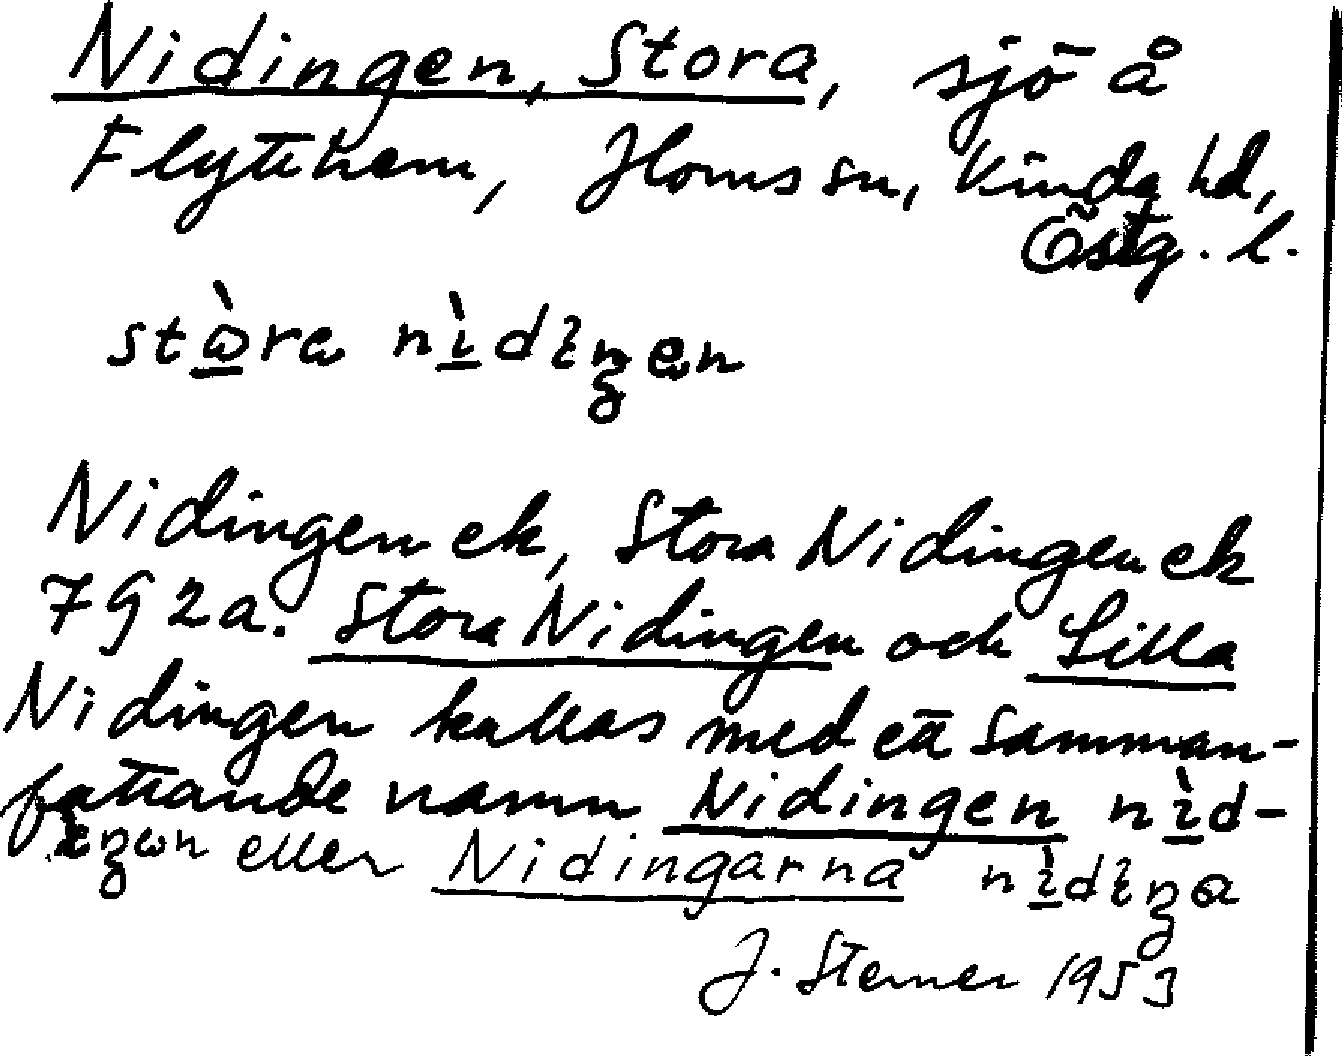 Nidingen, Stora, sjö å
Flyttihem, Horns sn, Kinda hd,
Östg. l.
stòra nìdiŋen
Nidingen ek, Stora Nidingen ek
792a. Stora Nidingen och Lilla
Nidingen kallas med ett samman-
fattande namn Nidingen nìd-
iŋən eller Nidingarna nìdiŋa
J. Sterner 1953